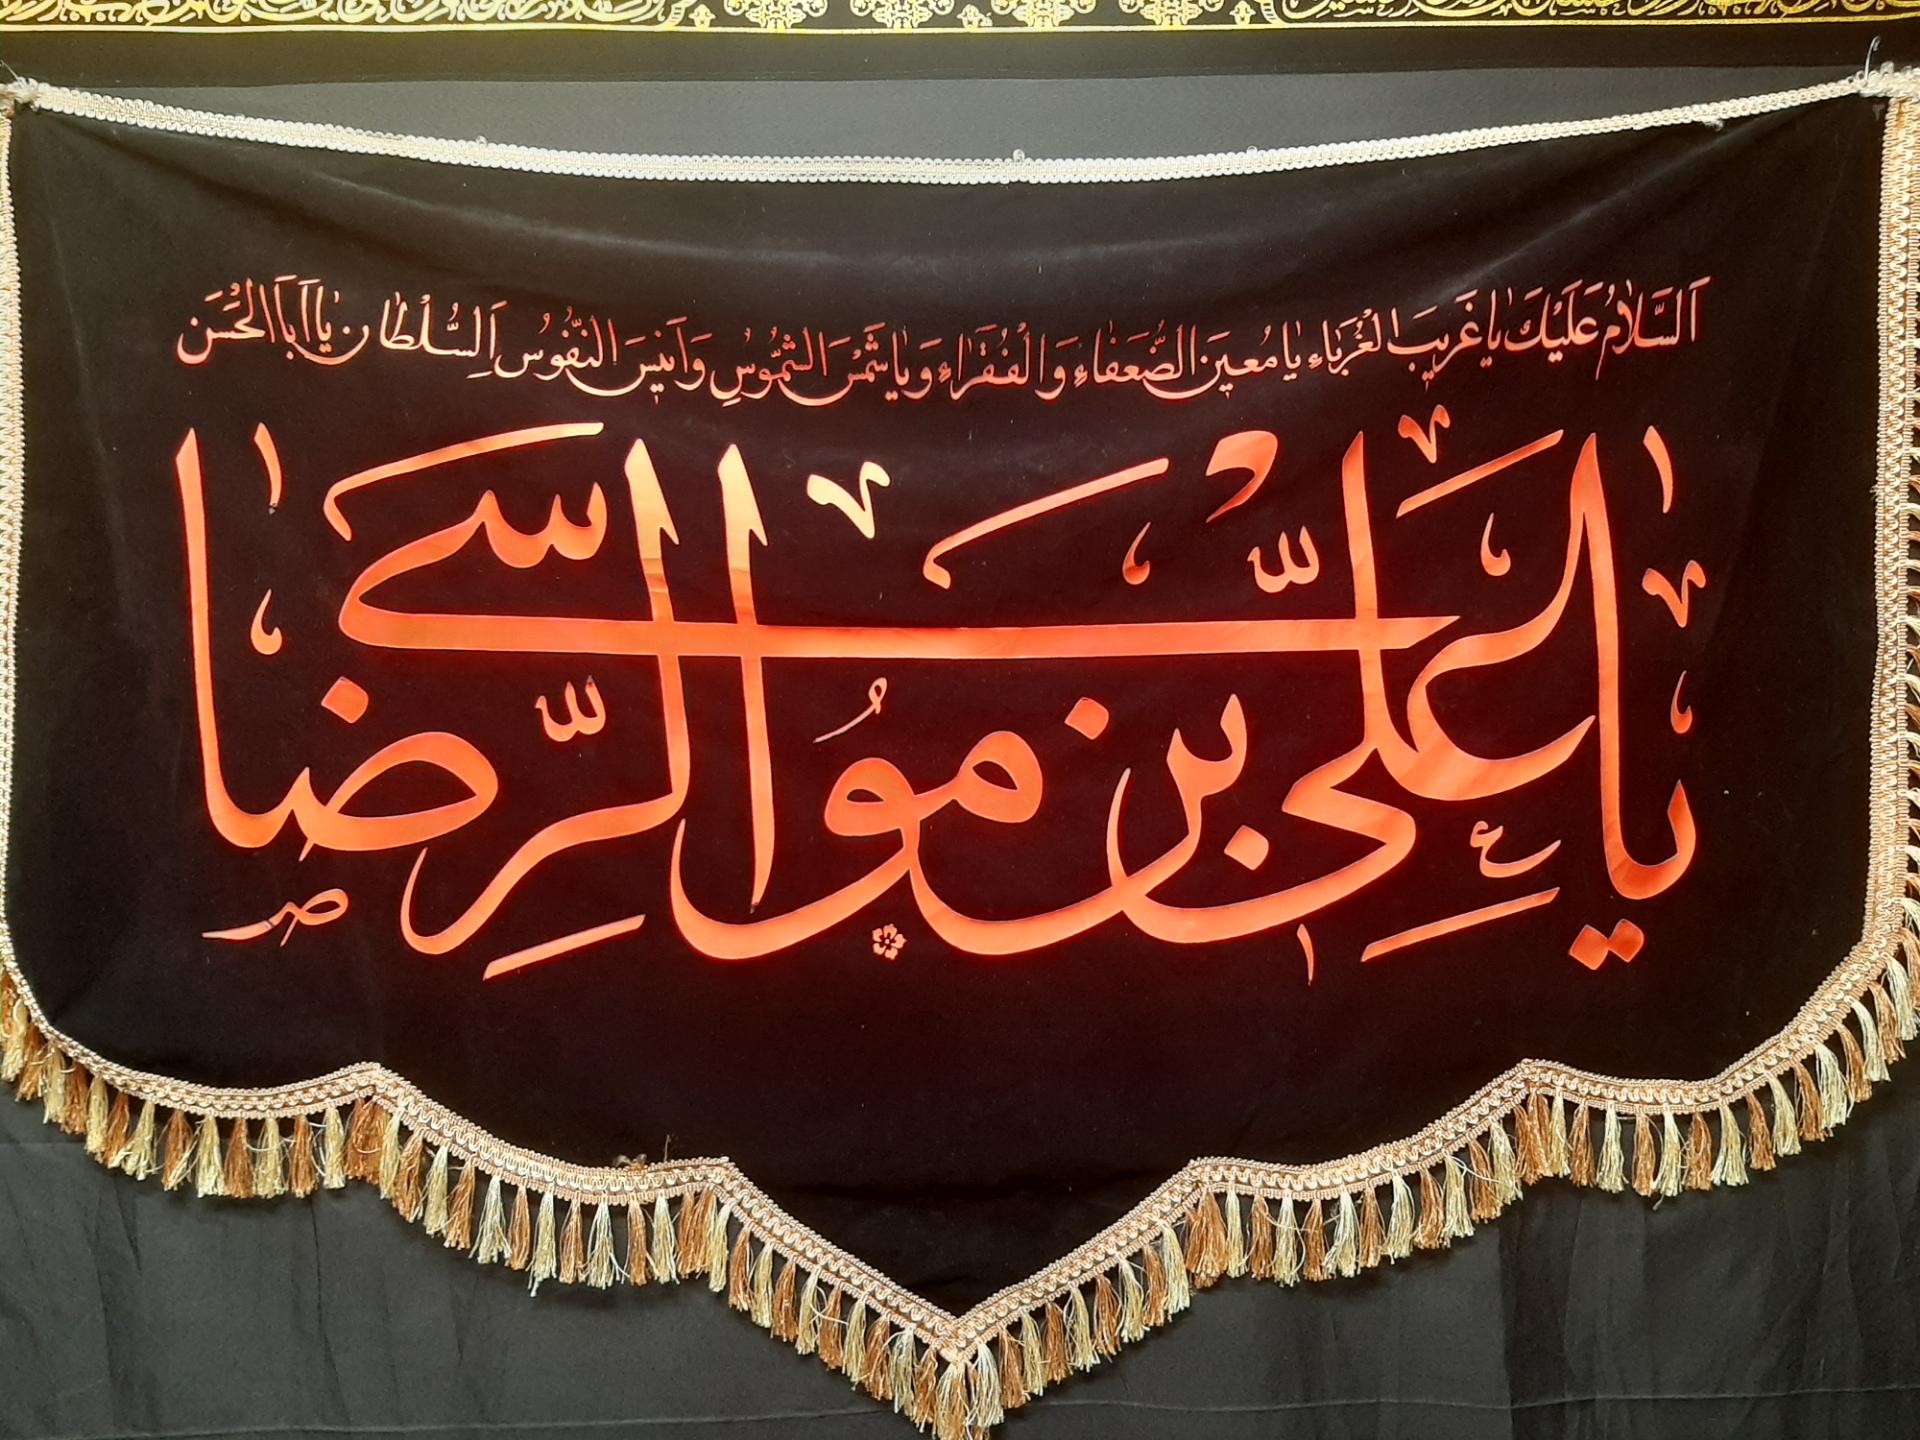 اَلسَّلامُ عَلَيْكَ يا غَريبَ الْغُرَباءِ يا مُعينَ الضُّعَفاءِ وَالْفُقَراءِ وَ يا شَمْسَ الشُّمُوسِ وَ اَنيسَ النُّفُوسِ اَلسُّلْطان يا اَبَا الْحَسَن
يا عَلِيِّ بن مُوسَى الرِّضا